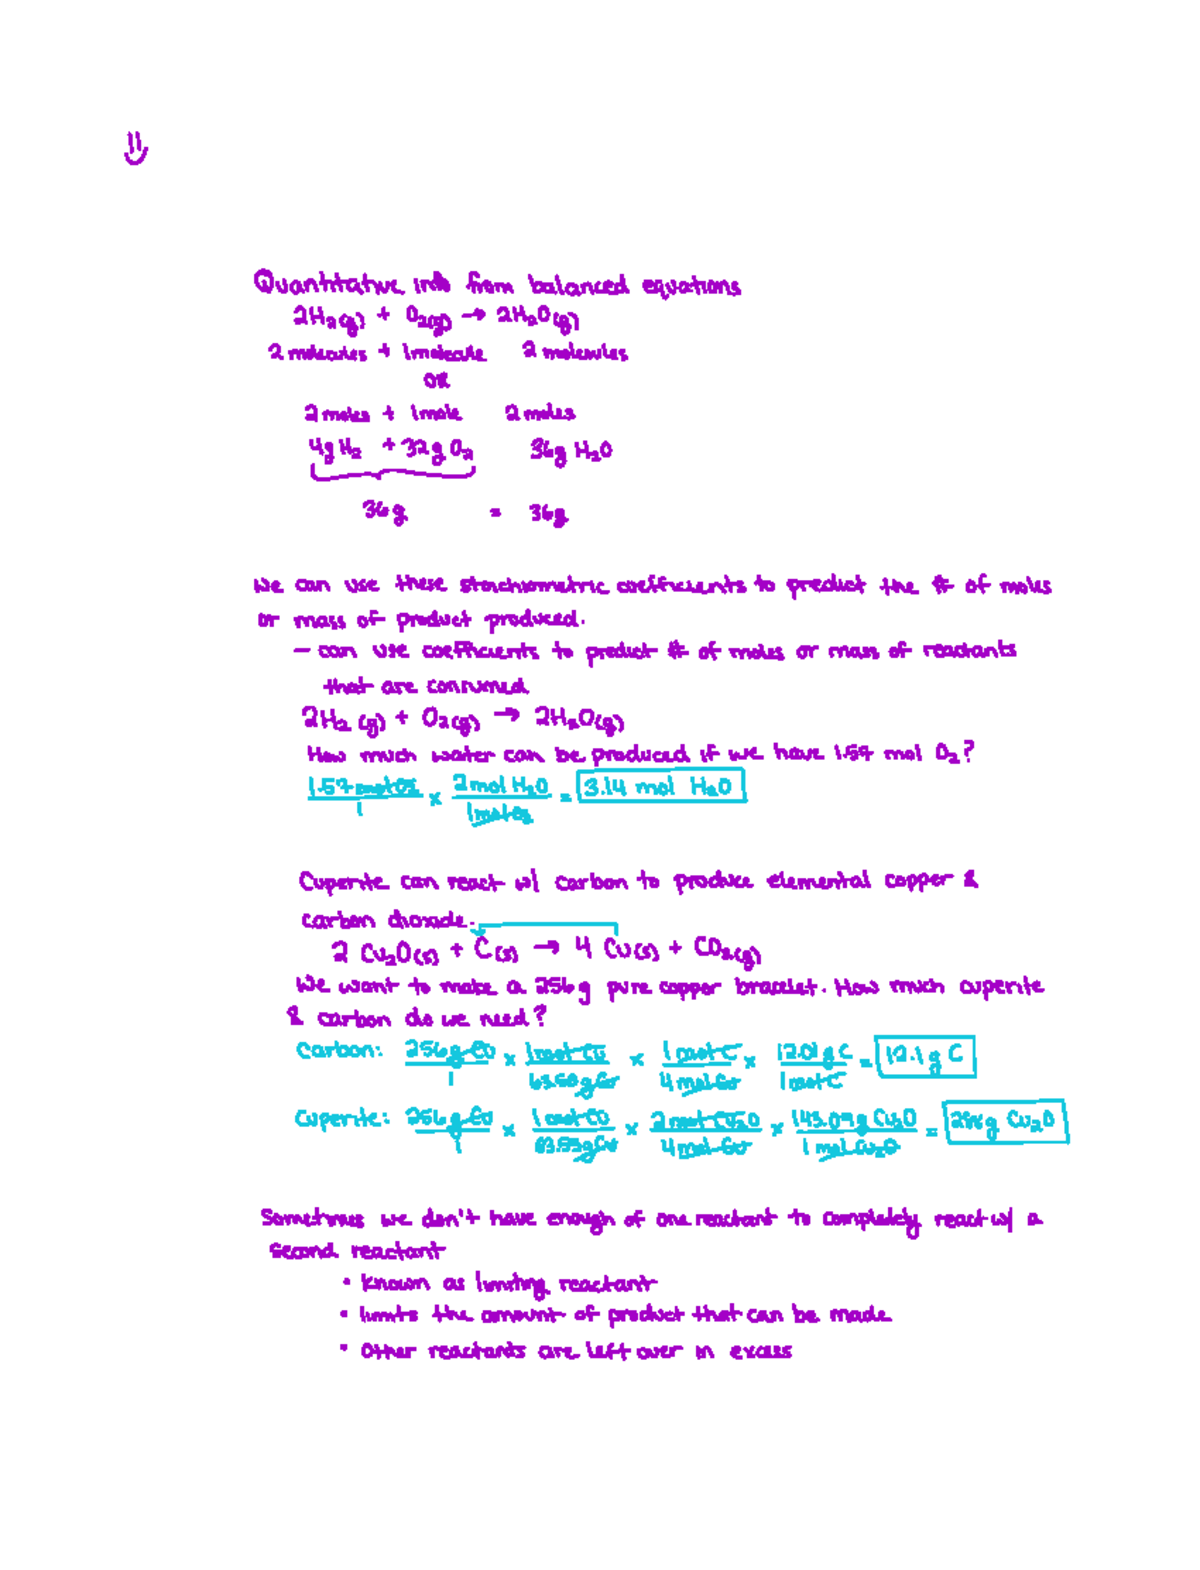 Quantitative info from balanced equations
2H₂(g) + O₂(g) → 2H₂O(g)
2 molecules + 1 molecule 2 molecules
OR
2 moles + 1 mole 2 moles
4g H₂ + 32g O₂ 36g H₂O
36g = 36g
We can use these stoichiometric coefficients to predict the # of moles
or mass of product produced.
– can use coefficients to predict # of moles or mass of reactants
that are consumed
2H₂(g) + O₂(g) → 2H₂O(g)
How much water can be produced if we have 1.57 mol O₂?
1.57 mol O₂/1 x 2 mol H₂O/1 mol O₂ = 3.14 mol H₂O
Cuperite can react w/ carbon to produce elemental copper &
carbon dioxide.
2 Cu₂O(s) + C(s) → 4 Cu(s) + CO₂(g)
We want to make a 256g pure copper bracelet. How much cuperite
& carbon do we need?
Carbon: 256g Cu/1 x 1 mol Cu/g Cu x 1 mol C/4 mol Cu x 12.01g C/1 mol C = 12.1g C
Cuperite: 256g Cu/1 x 1 mol Cu/63.55g Cu x 2 mol Cu₂O/4 mol Cu x 143.09g Cu₂O/1 mol Cu₂O = g Cu₂O
Sometimes we don't have enough of one reactant to completely react w/ a
second reactant
• known as limiting reactant
• limits the amount of product that can be made
• Other reactants are left over in excess